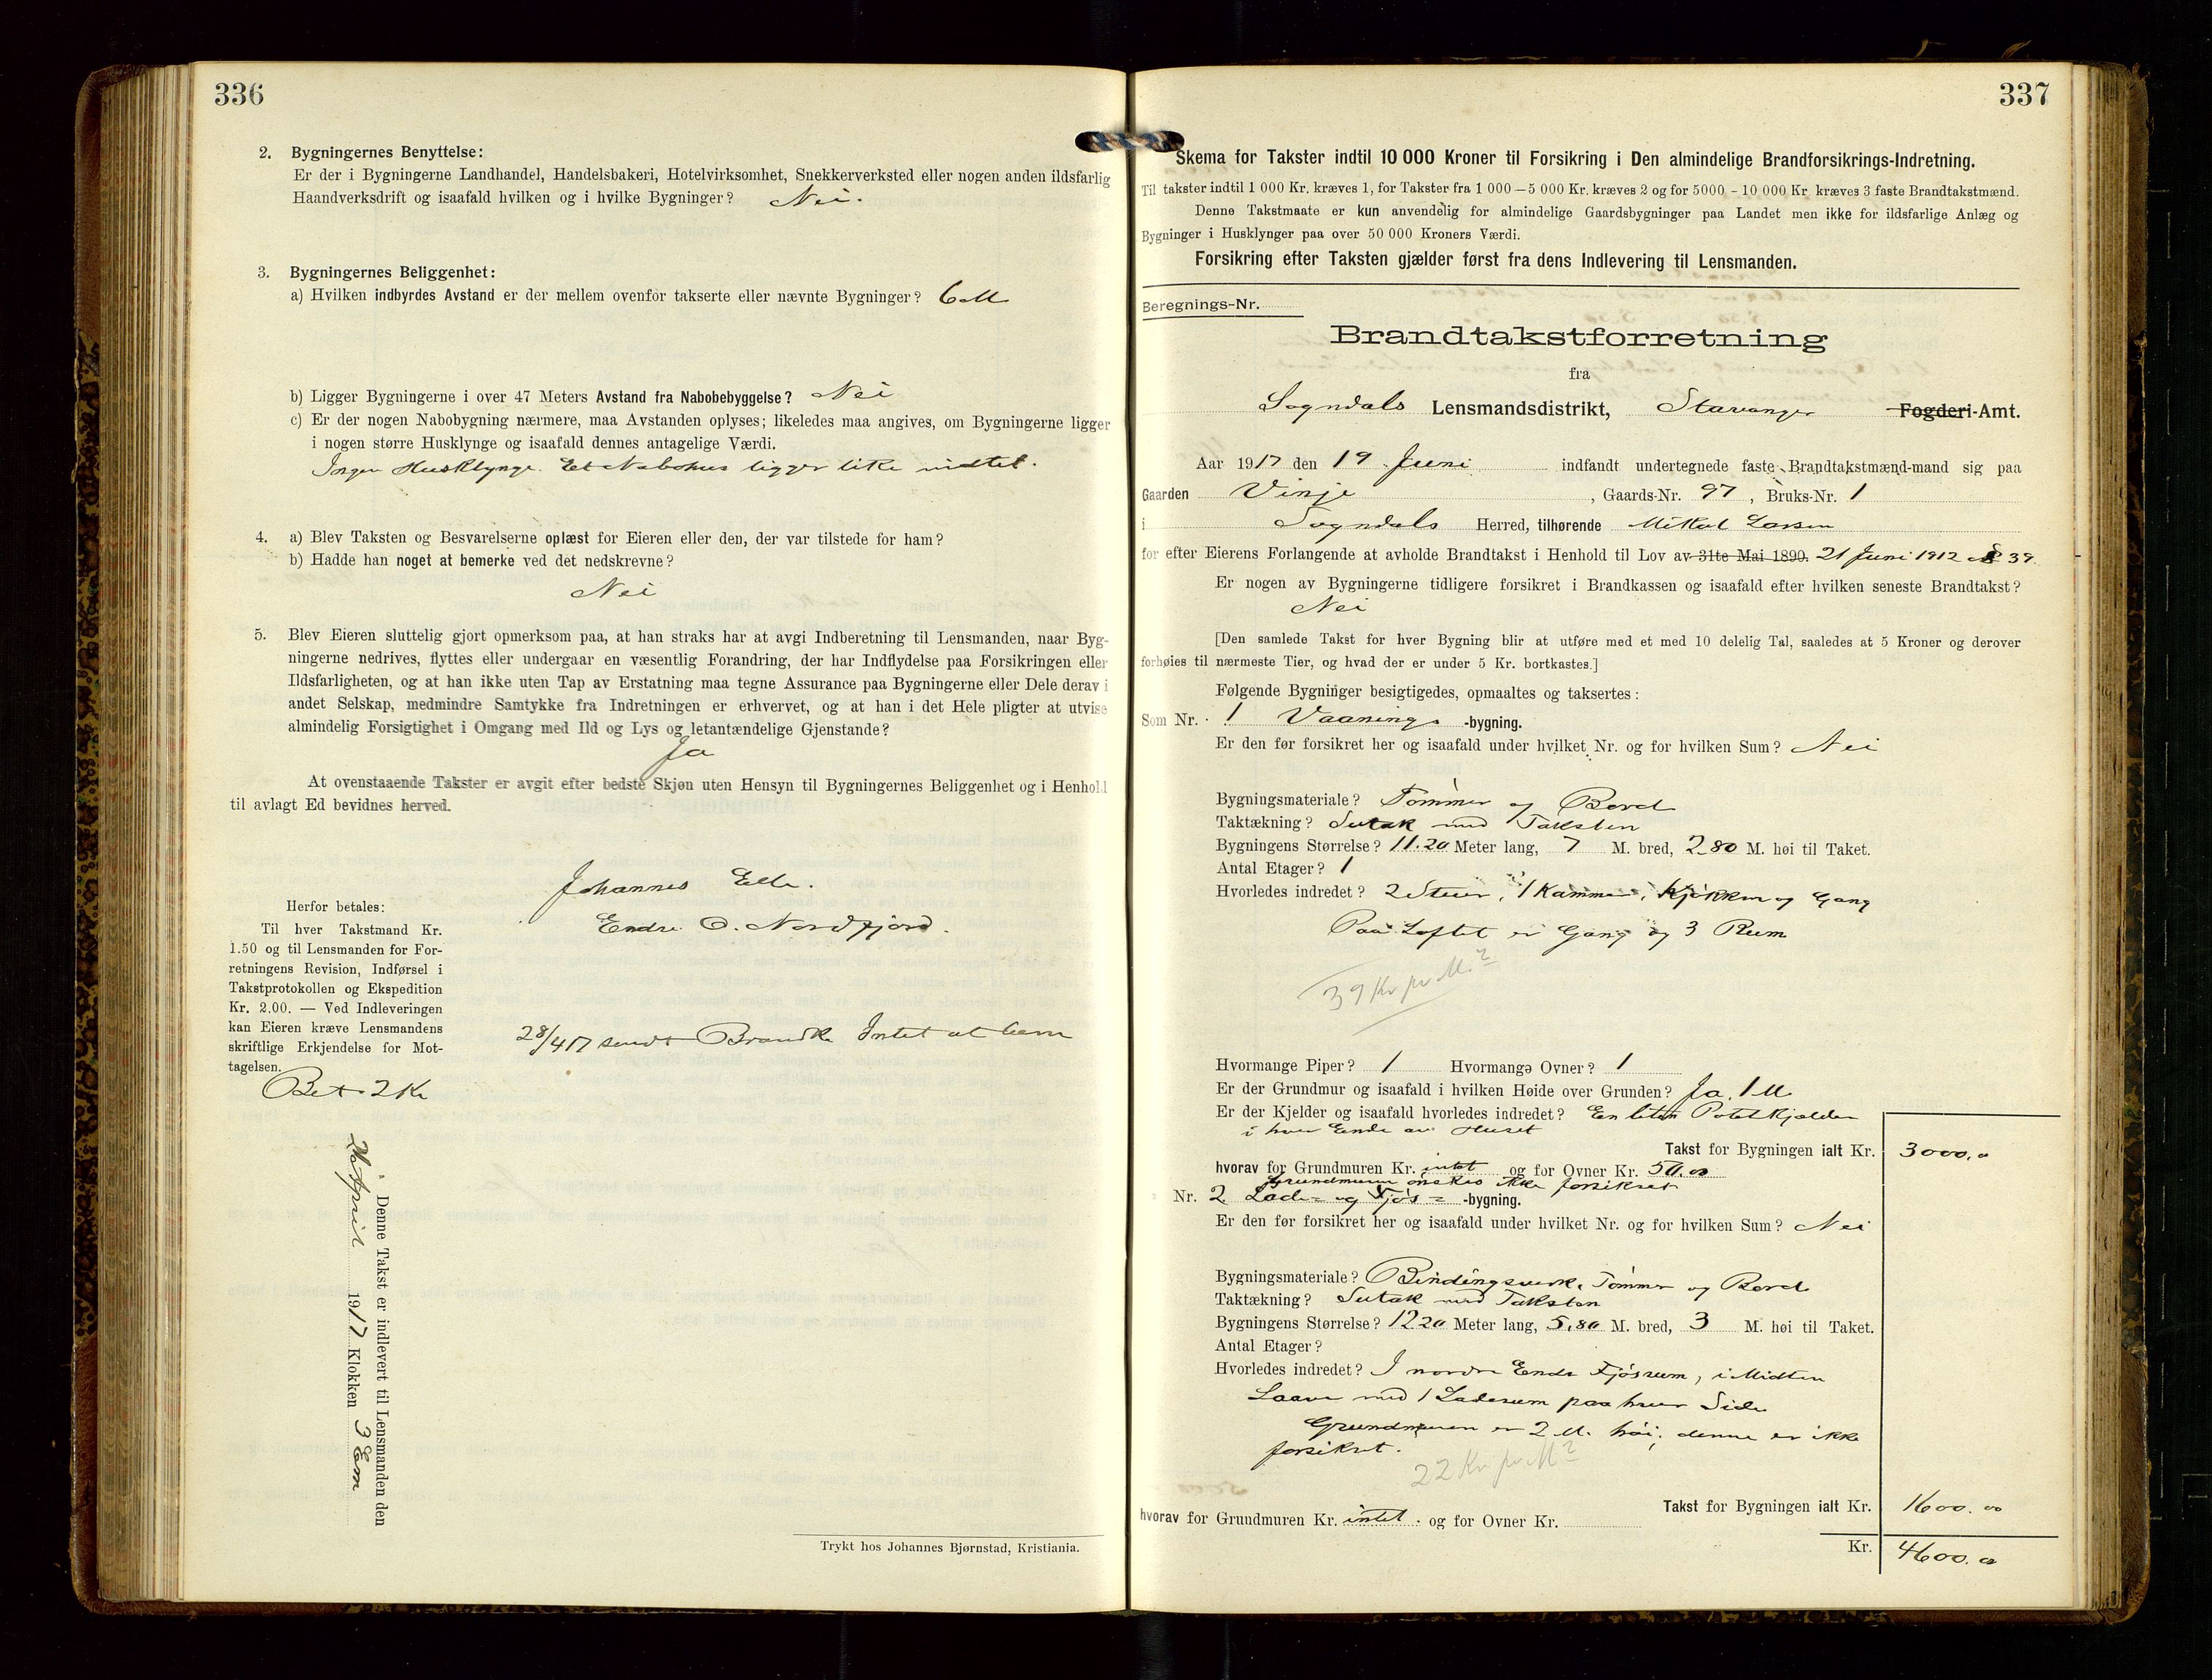 336
2. Bygningernes Benyttelse:
Er der i Bygningerne Landhandel, Handelsbakeri, Hotelvirksomhet, Snekkerverksted eller nogen anden ildsfarlig
Haandverksdrift og isaafald hvilken og i hvilke Bygninger? Nei.
3. Bygningernes Beliggenhet:
a) Hvilken indbyrdes Avstand er der mellem ovenfor takserte eller nævnte Bygninger? 6 M
b) Ligger Bygningerne i over 47 Meters Avstand fra Nabobebyggelse? Nei
c) Er der nogen Nabobygning nærmere, maa Avstanden oplyses; likeledes maa angives, om Bygningerne ligger
i nogen større Husklynge og isaafald dennes antagelige Værdi.
Ingen Husklynge. Et Nabohus ligger like indtil.
4. a) Blev Taksten og Besvarelserne oplæst for Eieren eller den, der var tilstede for ham?
b) Hadde han noget at bemerke ved det nedskrevne?
Nei
5. Blev Eieren sluttelig gjort opmerksom paa, at han straks har at avgi Indberetning til Lensmanden, naar Byg-
ningerne nedrives, flyttes eller undergaar en væsentlig Forandring, der har Indflydelse paa Forsikringen eller
Ildsfarligheten, og at han ikke uten Tap av Erstatning maa tegne Assurance paa Bygningerne eller Dele derav i
andet Selskap, medmindre Samtykke fra Indretningen er erhvervet, og at han i det Hele pligter at utvise
almindelig Forsigtighet i Omgang med Ild og Lys og letantændelige Gjenstande?
Ja
At ovenstaaende Takster er avgit efter bedste Skjøn uten Hensyn til Bygningernes Beliggenhet og i Henhold
til avlagt Ed bevidnes herved.
Johannes Eelle.
Endre O. Nordfjord.
Herfor betales:
Til hver Takstmand Kr.
1.50 og til Lensmanden for For-
retningens Revision, Indførsel i
Takstprotokollen og Ekspedition
Kr. 2.00. — Ved Indleveringen
kan Eieren kræve Lensmandens
skriftlige Erkjendelse for Mot-
tagelsen.
Bet 2 Kr
28/4 17 sendt Brandk Intet at bem
Denne Takst er indlevert til Lensmanden den
April 1917 Klokken 3 Em
Trykt hos Johannes Bjørnstad, Kristiania.
337
Skema for Takster indtil 10 000 Kroner til Forsikring i Den almindelige Brandforsikrings-Indretning.
Til takster indtil 1 000 Kr. kræves 1, for Takster fra 1 000 — 5 000 Kr. kræves 2 og for 5000 - 10 000 Kr. kræves 3 faste Brandtakstmænd.
Denne Takstmaate er kun anvendelig for almindelige Gaardsbygninger paa Landet men ikke for ildsfarlige Anlæg og
Bygninger i Husklynger paa over 50 000 Kroners Værdi.
Forsikring efter Taksten gjælder først fra dens Indlevering til Lensmanden.
Beregnings-Nr.
Brandtakstforretning
fra
Sogndals Lensmandsdistrikt, Stavanger Fogderi-Amt.
Aar 1917 den 19 Juni indfandt undertegnede faste Brandtakstmænd-mand sig paa
Gaarden Vinje, Gaards-Nr. 97, Bruks-Nr. 1
i Sogndals Herred, tilhørende Mikal Larsen
for efter Eierens Forlangende at avholde Brandtakst i Henhold til Lov av 31te Mai 1890. 21 Juni 1912 § 39.
Er nogen av Bygningerne tidligere forsikret i Brandkassen og isaafald efter hvilken seneste Brandtakst?
Nei
[Den samlede Takst for hver Bygning blir at utføre med et med 10 delelig Tal, saaledes at 5 Kroner og derover
forhøies til nærmeste Tier, og hvad der er under 5 Kr. bortkastes.]
Følgende Bygninger besigtigedes, opmaaltes og taksertes:
Som Nr. 1 Vaanings -bygning.
Er den før forsikret her og isaafald under hvilket Nr. og for hvilken Sum? Nei
Bygningsmateriale? Tømmer og Bord
Taktækning? Sutak med Taksten
Bygningens Størrelse? 11.20 Meter lang, 7 M. bred, 2.80 M. høi til Taket.
Antal Etager? 1
Hvorledes indredet? 2 Stuer, 1 Kammer, Kjøkken og Gang
Paa Loftet er Gang og 3 Rum
39 Kr pr M.2
Hvormange Piper? 1 Hvormange Ovner? 1
Er der Grundmur og isaafald i hvilken Høide over Grunden? Ja, 1 M
Er der Kjelder og isaafald hvorledes indredet? En liten Potetkjelder
i hver Ende av Huset
Takst for Bygningen ialt Kr. 3000.00
hvorav for Grundmuren Kr. intet og for Ovner Kr. 50.00
Grundmuren ønskes ikke forsikret
Nr. 2 Lade- og Fjøs- -bygning.
Er den før forsikret her og isaafald under hvilket Nr. og for hvilken Sum? Nei
Bygningsmateriale? Bindingsverk, Tømmer og Bord
Taktækning? Sutak med Taksten
Bygningens Størrelse? 12.20 Meter lang, 5.80 M. bred, 3 M. høi til Taket.
Antal Etager?
Hvorledes indredet? I nordre Ende Fjøsrum, i Midten
Laave med 1 Laderum paa hver Side
Grundmuren er 2 M. høi, denne er ikke
forsikret.
22 Kr pr M2
Takst for Bygningen ialt Kr. 1600.00
hvorav for Grundmuren Kr. intet. og for Ovner Kr.
Kr. 4600.00